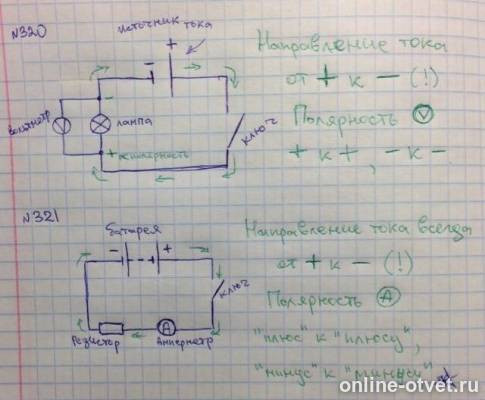 №320
источник тока
Направление тока
от + к – (!)
вольтметр
V
лампа
ключ
Полярность V
+ полярность
+ к +, – к –
№321
Батарея
Направление тока всегда
от + к – (!)
ключ
Полярность A
Резистор
A
Амперметр
"плюс" к "плюсу",
"минус" к "минусу"
online-otvet.ru